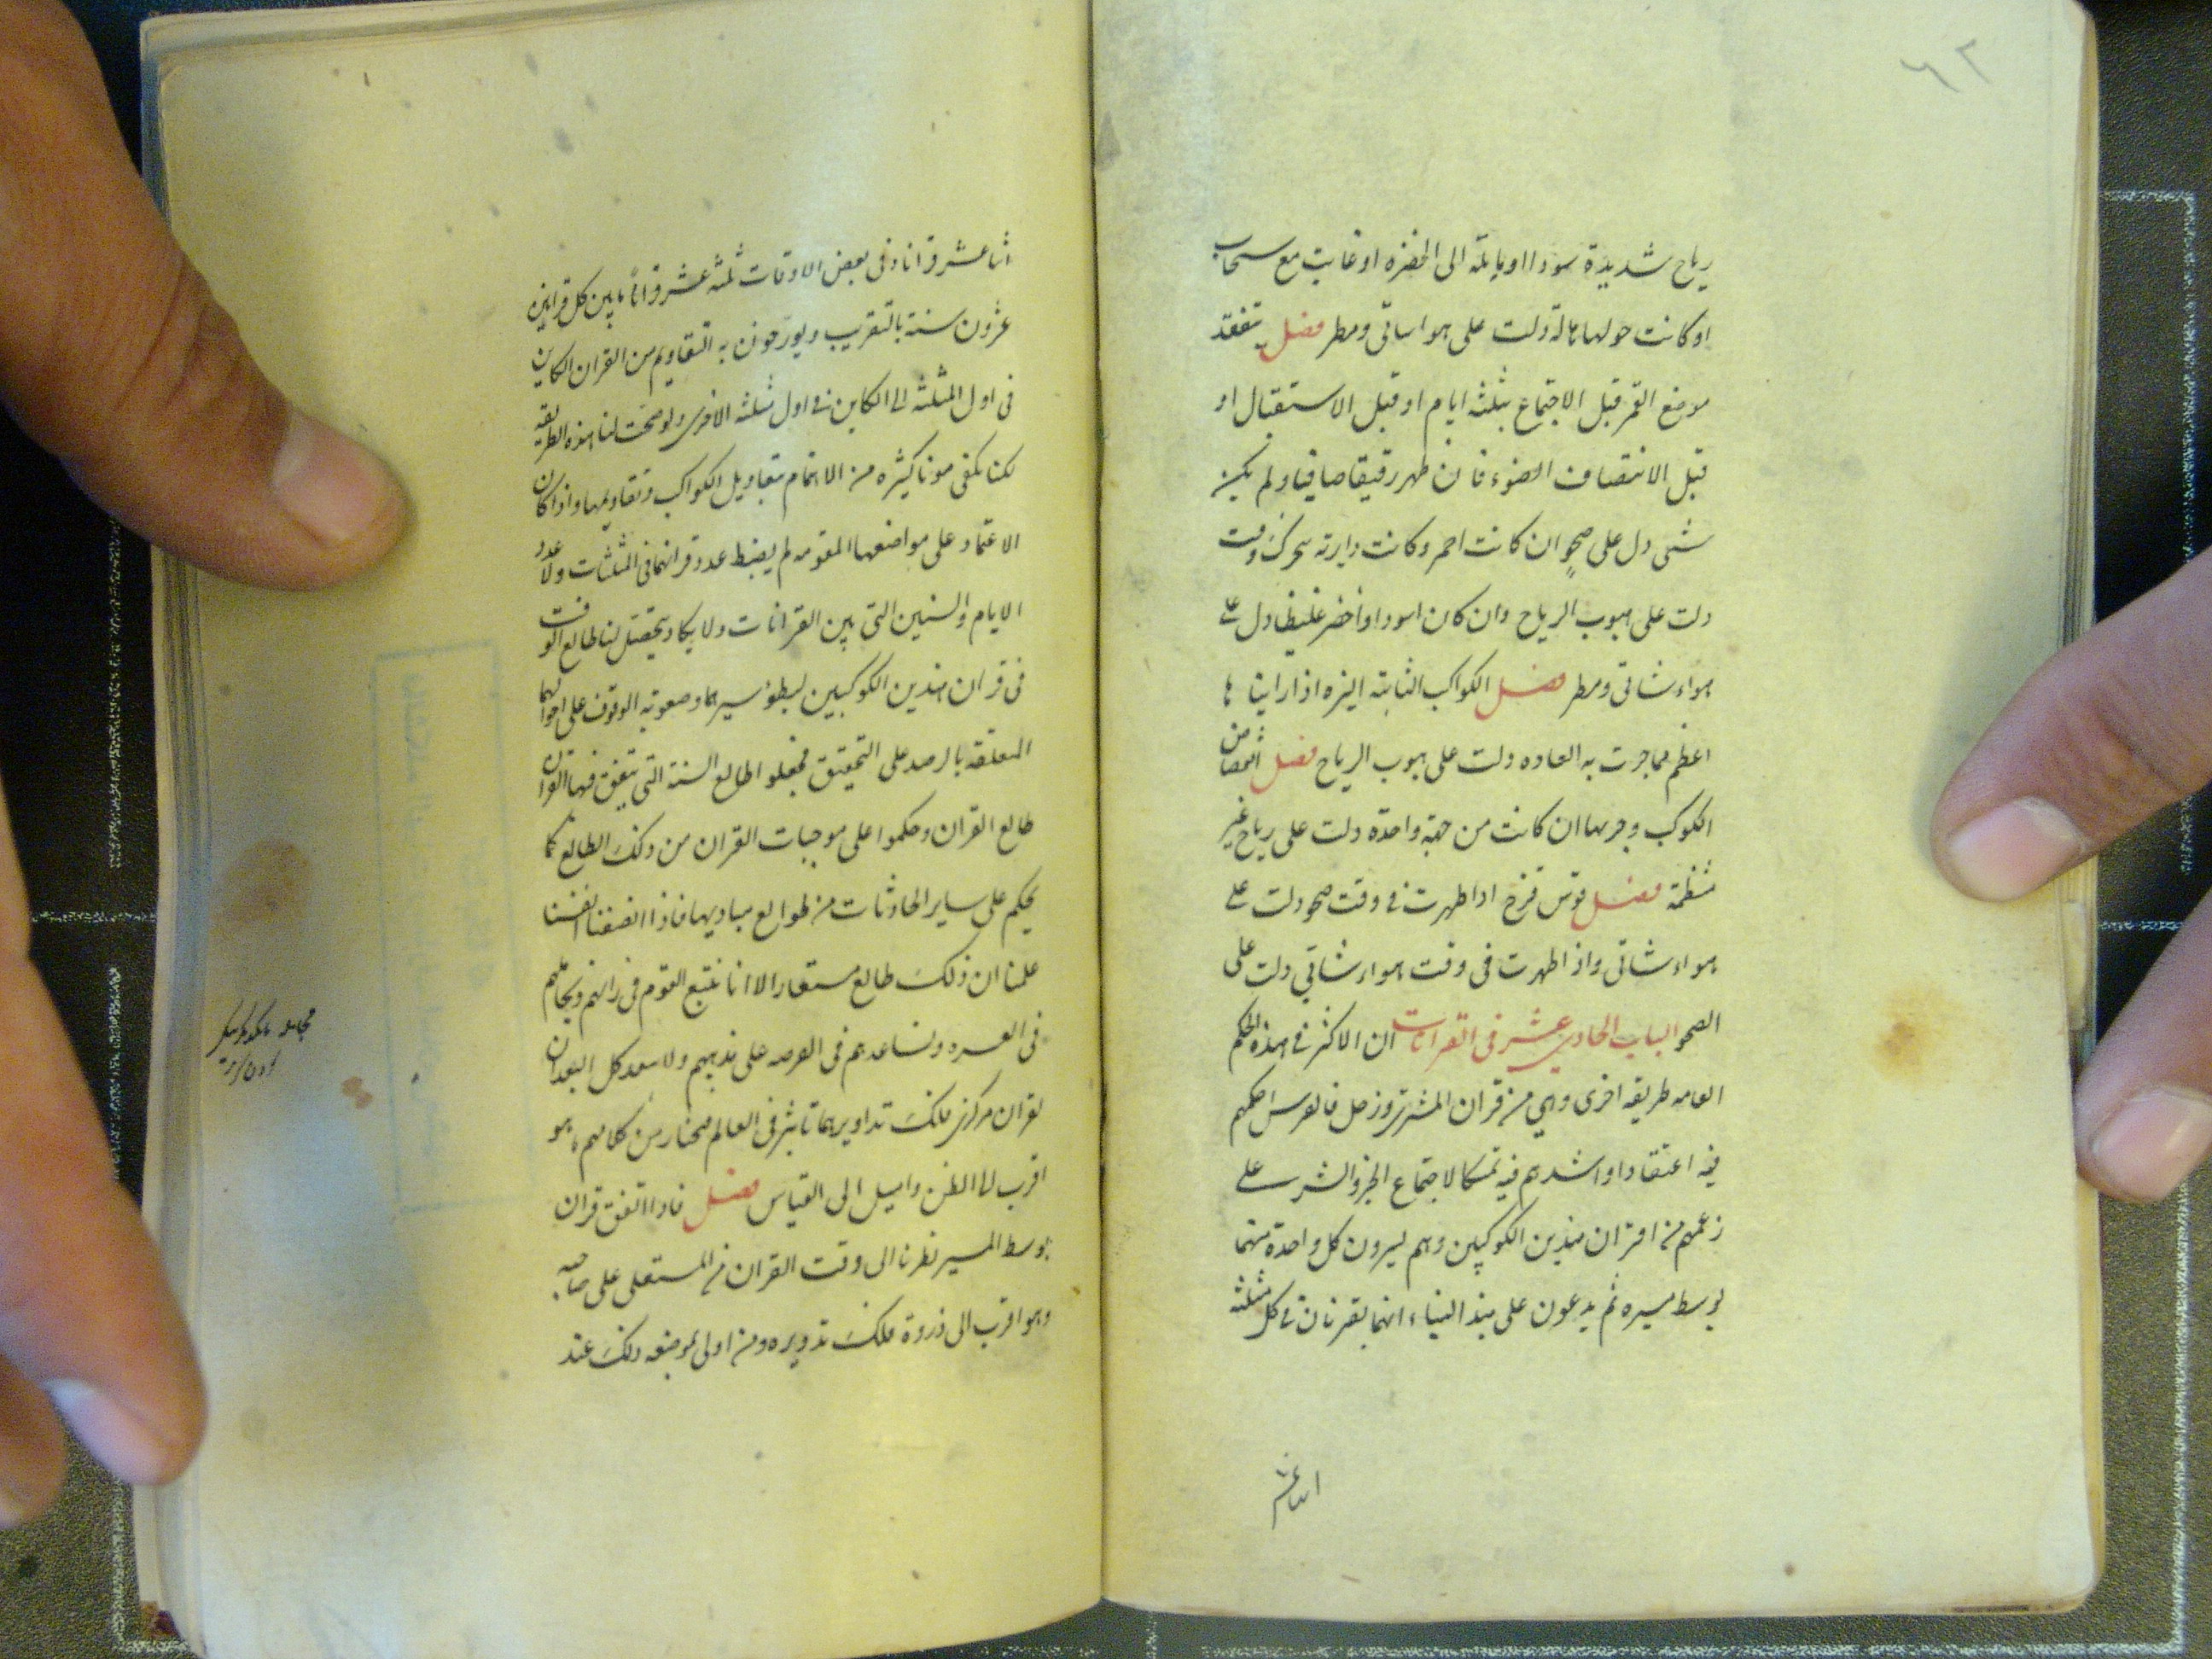 ٦٢
رياح شديدة سودا او مايلة الى الخضرة او غابت مع سحاب
او كانت حولها هالة دلت على هواء شاتى ومطر فصل يتفقد
موضع القمر قبل الاجتماع بثلثه ايام او قبل الاستقبال او
قبل الانتصاف الضوء فان ظهر رقيقا صافيا ولم يكن
شى دل على صحو ان كانت احمر وكانت دايرته متحركة
دلت على هبوب الرياح وان كان اسود او اخضر غليظا دل على
هواء شاتى ومطر فصل الكواكب الثابته النيره اذا رايتها
اعظم مما جرت به العاده دلت على هبوب الرياح فصل انقضاض
الكوكب وجريها ان كانت من جهة واحدة دلت على رياح غير
منتظمة فصل قوس قزح اذا ظهرت فى وقت صحو دلت على
هواء شاتى واذا ظهرت فى وقت هواء شاتى دلت على
الصحو الباب الحادى عشر فى القرانات ان الاكثر فى هذه الحكم
العامه طريقه اخرى وهى من قران المشترى وزحل فالفرس احكمهم
فيه اعتقادا واشدهم فيه تمسكا لاجتماع الخير والشر على
زعمهم من اقتران هذين الكوكبين وهم يسيرون كل واحدة منهما
بوسط مسيره ثم يدعون على هذا البناء انهما يقترنان فى كل مثلثه
اثنا عشر
اثنا عشر قرانا وفى بعض الاوقات ثلثه عشر قرانًا ما بين كل قرانين
عشرون سنة بالتقريب ويورخون به التقاويم من القران الكاين
فى اول المثلثه الى الكاين فى اول مثلثه الاخرى ولو صحت لنا هذه الطريقه
لكنا نكفى مونا كثيره من الاهتمام بتعاديل الكواكب وتقاويمها واذا كان
الاعتماد على مواضعها المقومه لم يضبط عدد قرانهما فى المثلثات ولا عدد
الايام والسنين التى بين القرانات ولا يكاد يتحصل لنا طالع الوقت
فى قران هذين الكوكبين لبطؤ سيرهما وصعوبة الوقوف على احوالهما
المتعلقة بالرصد على التحقيق فجعلوا طالع السنة التى يتفق فيها القران
طالع القران وحكموا على موجبات القران من ذلك الطالع كما
يحكم على ساير الحادثات من طوالع مباديها فاذا انصفنا انفسنا
علمنا ان ذلك طالع مستعار الا انا نتبع القوم فى رايهم
فى العسره ونساعدهم فى الفرصه على مذهبهم ولا سعد كل البعد ان
لقران مركزى فلك تداويرهما تاثير فى العالم مختار من كلامهم ما هو
اقرب الى الظن واميل الى القياس فصل فاذا اتفق قران
بوسط المسير نظرنا الى وقت القران من المستعلى على صاحبه
وهو اقرب الى ذروة فلك تدويره ومن اولى بموضعه ذلك عند